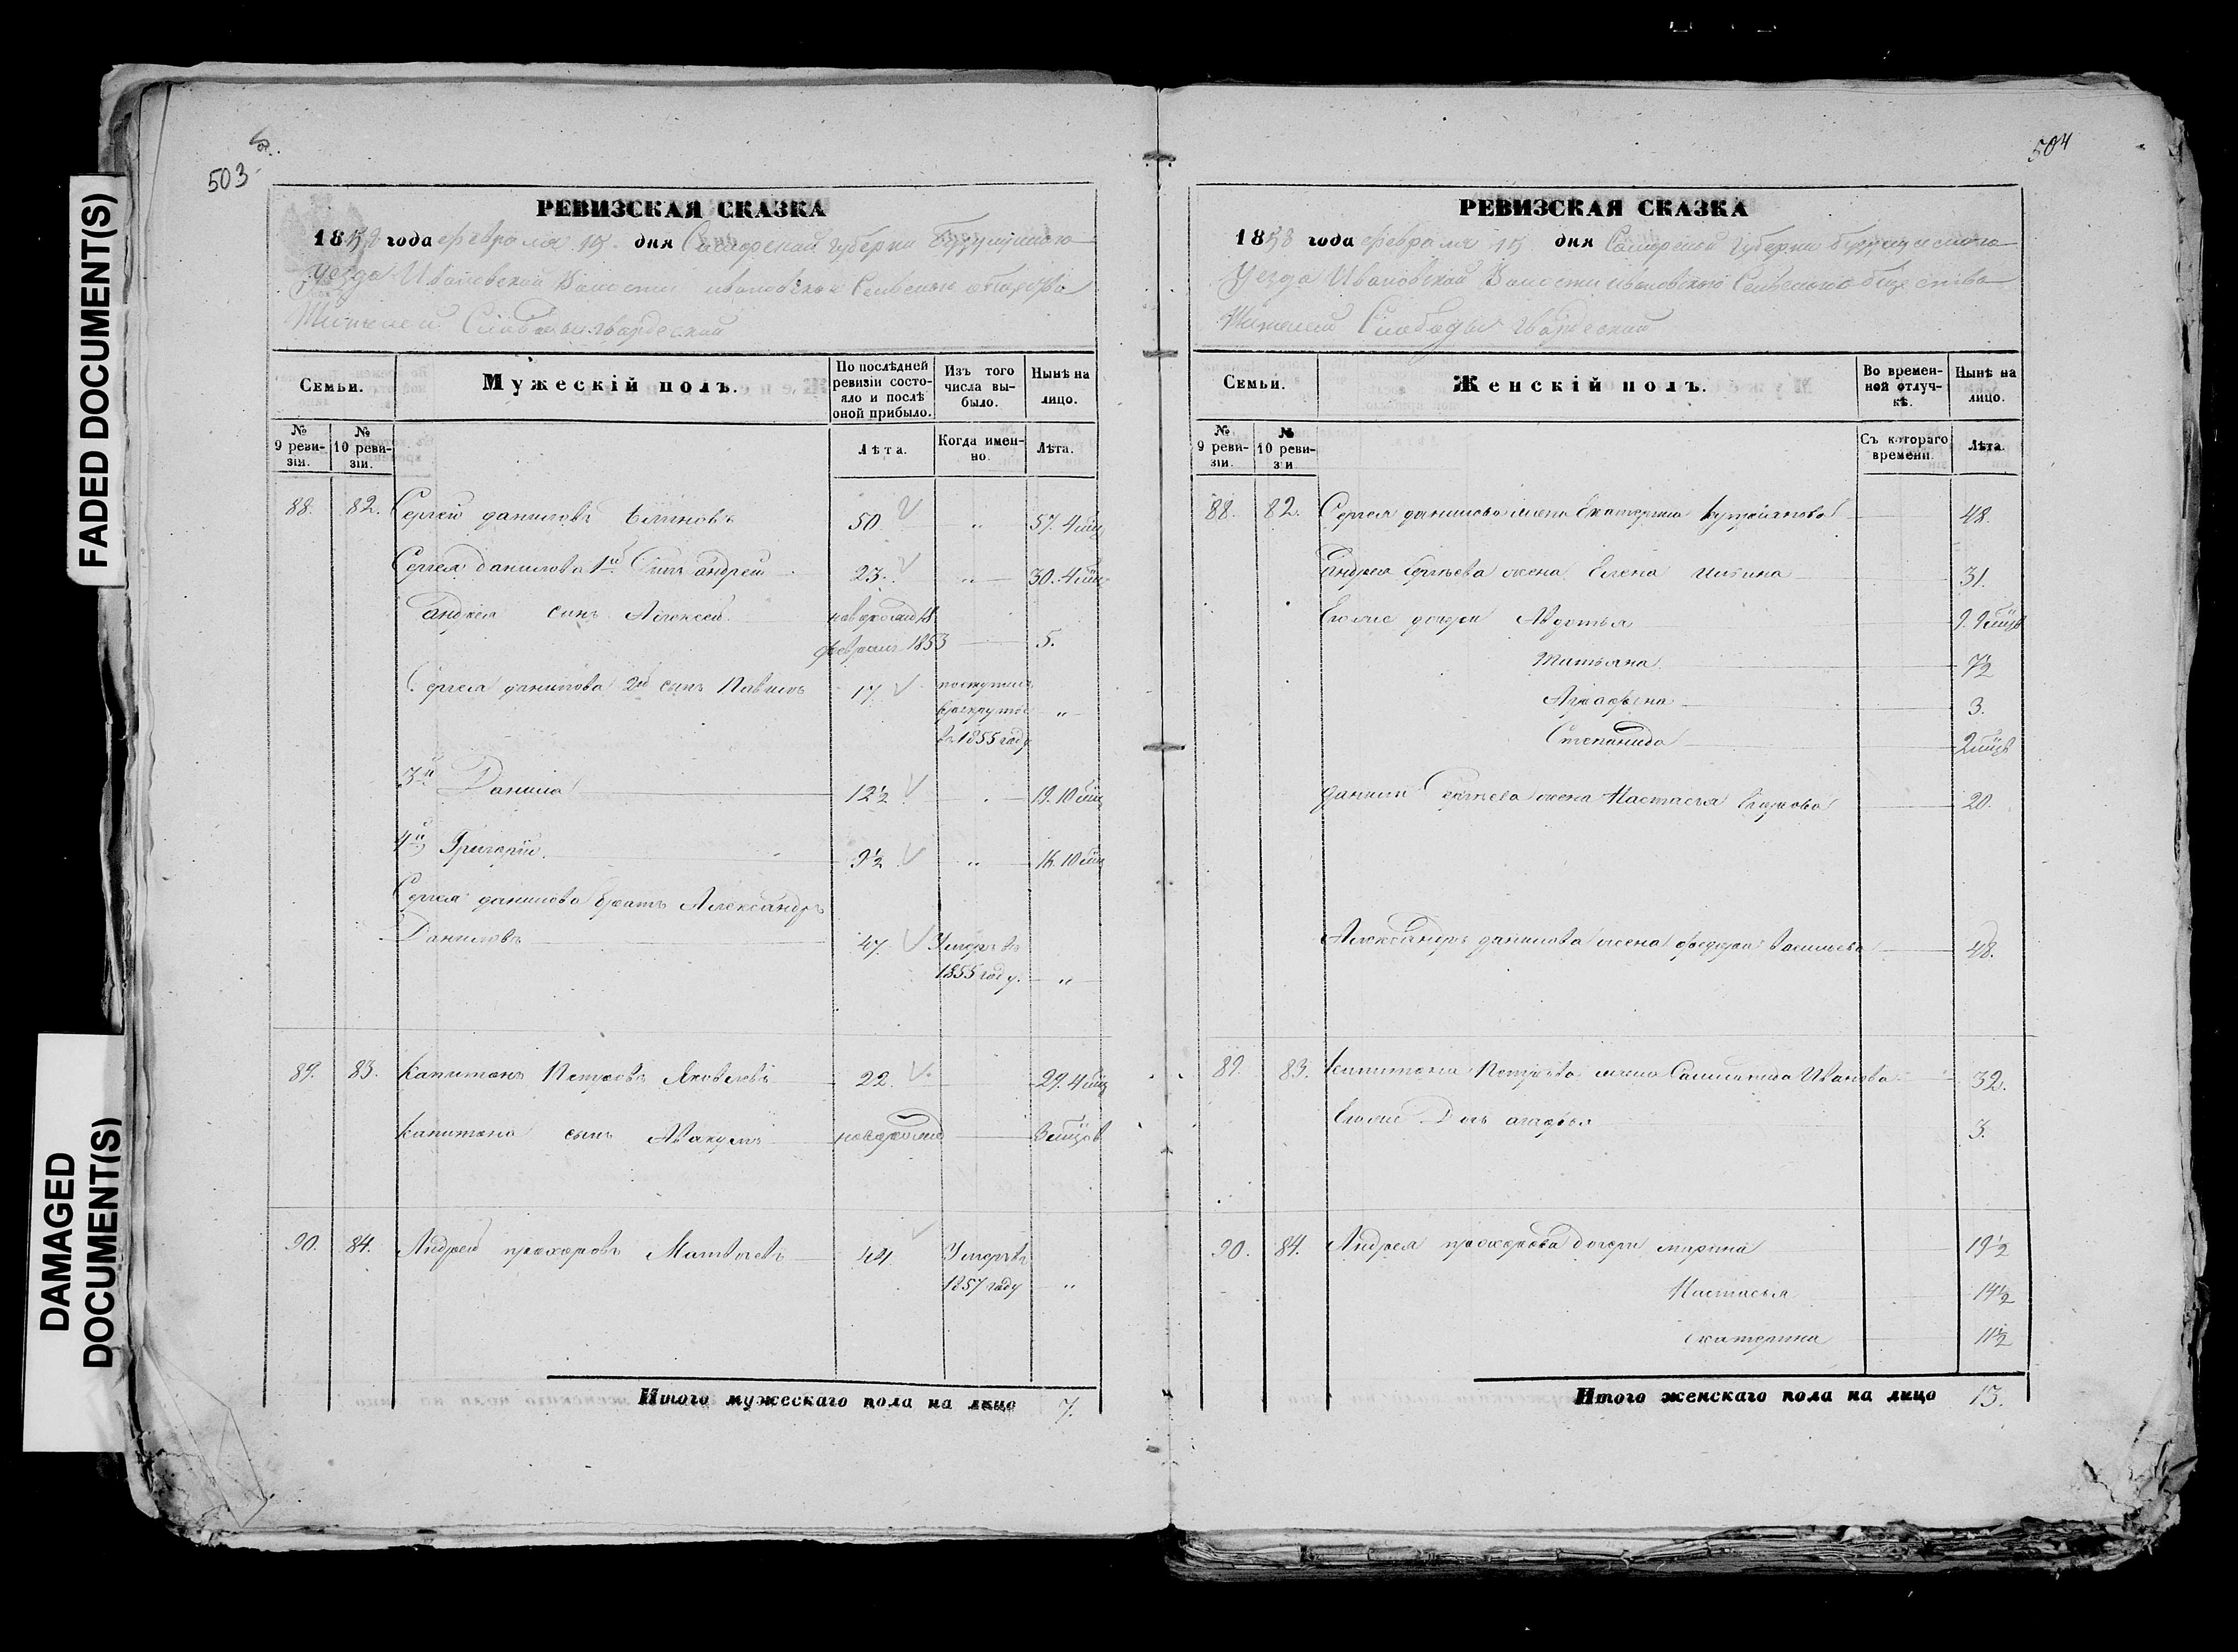 FADED DOCUMENT(S)
DAMAGED
DOCUMENT(S)
503
РЕВИЗСКАЯ СКАЗКА
1858 года февраля 15 дня Самарской губернии Бузулукского
Уезда Ивановской Волости Ивановского Сельского общества
Жителей Слободы Гвардеской
Семьи.
Мужескій полъ.
По послѣдней
ревизіи состо-
яло и послѣ
оной прибыло.
Изъ того
числа вы-
было.
Нынѣ на
лицо.
№
9 реви-
зіи.
№
10 реви-
зіи.
Лѣта.
Когда имен-
но.
Лѣта.
88. 82. Сергей даниловъ 50 " 57. 4 мѣц
Сергея данилова 1й Сынъ андрей 23. " 30. 4 мѣц
андрея сынъ Алексей новорожд 18
февраля 1853 5.
Сергея данилова 2й сынъ Павилъ 17 поступилъ
врекруты "
въ 1855 году
3й Данила 12½ 19. 10 мѣц
4й Григорій 9½ " 16. 10 мѣц
Сергея данилова братъ Александръ
Даниловъ 47. Умеръ въ
1855 году. "
89. 83. Капитонъ Петровъ Яковлевъ 22. 29. 4 мѣц
Капитона сынъ Авакумъ новорожд 3 мѣцов
90. 84. Андрей прохоровъ Матвѣевъ 44. Умеръ въ
1857 году "
Итого мужескаго пола на лицо 7.
504
РЕВИЗСКАЯ СКАЗКА
1858 года февраля 15 дня Самарской Губернии Бузулукского
Уезда Ивановской Волости ивановского Сельского общества
Жителей Слободы Гвардеской
Семьи.
Женскій полъ.
Во времен-
ной отлуч-
кѣ.
Нынѣ на
лицо.
№
9 реви-
зіи.
№
10 реви-
зіи
Съ котораго
времени.
Лѣта.
88. 82. Сергея данилова жена Екатерина 48.
андрея Сергѣева жена Елена Ильина 31.
Егоже дочери Авдотья 9. 9 мѣцв
Татьяна 7½
Аграфена 3.
Степанида 2 мѣцв
данилы Сергѣева жена Настасья 20.
Александра данилова жена федора васильева 48.
89. 83. Капитона Петрова жена Саломанида Иванова 32.
Егоже Дочь агафья 3.
90. 84. Андрея прохорова дочери марина 19½
Настасья 14½
екатерина 11½
Итого женскаго пола на лицо 13.